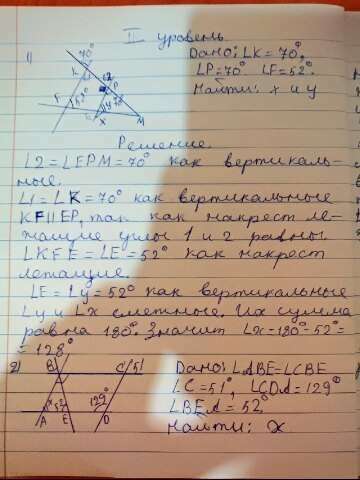 II уровень
1)
Дано: ∠K = 70°,
∠P = 70° ∠F = 52°
Найти: x и y
70°
K
12
P
F
52°
70°
y
E
x
M
Решение.
∠2 = ∠EPM = 70° как вертикаль-
ные.
∠1 = ∠K = 70° как вертикальные
KF || EP, так как накрест ле-
жащие углы 1 и 2 равны.
∠KFE = ∠E = 52° как накрест
лежащие.
∠E = ∠y = 52° как вертикальные
∠y и ∠x смежные. Их сумма
равна 180°. Значит ∠x = 180° - 52° =
= 128°
2)
Дано: ∠ABE = ∠CBE
∠C = 51°, ∠CDA = 129°
∠BEA = 52°
Найти: x
B
C
51
x
52
129°
A
E
D